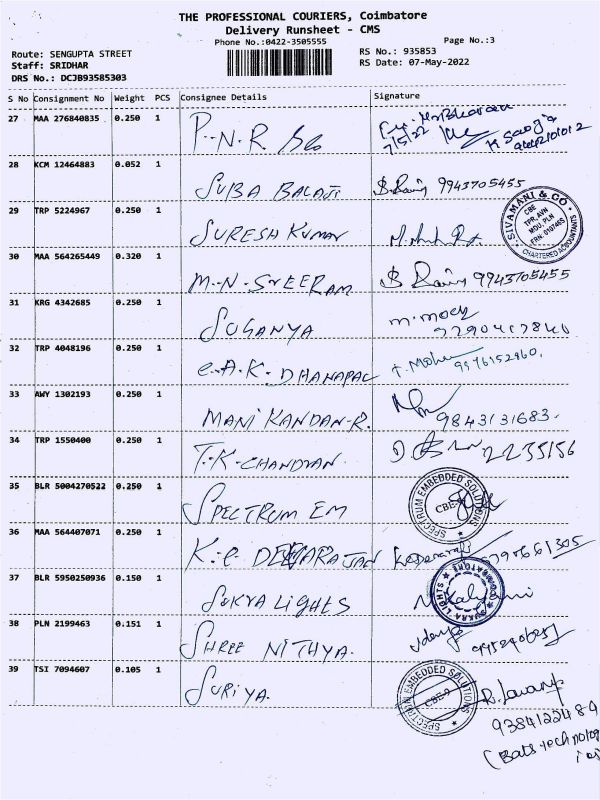 THE PROFESSIONAL COURIERS, Coimbatore
Delivery Runsheet - CMS
Phone No.:0422-3505555
Page No.:3
Route: SENGUPTA STREET
RS No.: 935853
Staff: SRIDHAR
RS Date: 07-May-2022
DRS No.: DCJB93585303
S No Consignment No Weight PCS Consignee Details Signature
27 MAA 276840835 0.250 1 P.N.R 7/5/22
28 KCM 12464883 0.052 1 SUBA BALAJI 9943705455
29 TRP 5224967 0.250 1 SURESH KUMAR
SIVAMANI & CO.
CBE
TPR, AVN
MDU, PLN
CHARTERED ACCOUNTANTS
30 MAA 564265449 0.320 1 M.N. SREERAM 9943705455
31 KRG 4342685 0.250 1 SUGANYA
32 TRP 4048196 0.250 1 C.A.K. DHANAPAL 9976152960.
33 AWY 1302193 0.250 1 MANIKANDAN-R. 9843131683.
34 TRP 1550400 0.250 1 T.K-CHANDRAN. 2235156
35 BLR 5004270522 0.250 1 SPECTRUM EM
SPECTRUM EMBEDDED SOLUTIONS
36 MAA 564407071 0.250 1 K.C. DEVARAJAN
37 BLR 5950250936 0.150 1 SUKRA LIGHTS
SUKRA LIGHTS
COIMBATORE
38 PLN 2199463 0.151 1 SHREE NITHYA.
39 TSI 7094607 0.105 1 SURIYA.
SPECTRUM EMBEDDED SOLUTIONS
9384122489